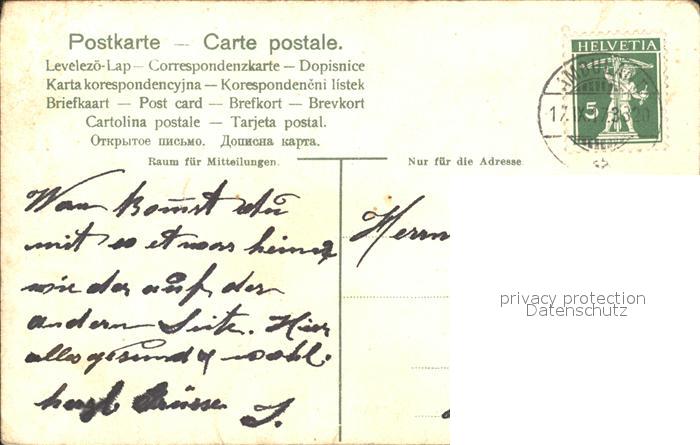 Postkarte — Carte postale.
Levelező-Lap — Correspondenzkarte — Dopisnice
Karta korespondencyjna — Korespondenční lístek
Briefkaart — Post card — Brefkort — Brevkort
Cartolina postale — Tarjeta postal.
Открытое письмо. Дописна карта.
HELVETIA
5
Raum für Mitteilungen.
Nur für die Adresse
Wan kom̄st du
mit so etwas heim?
wie der auf der
andern Seite. Hier
alles gesund & wohl.
herzl Grüsse J.
Herrn
privacy protection
Datenschutz